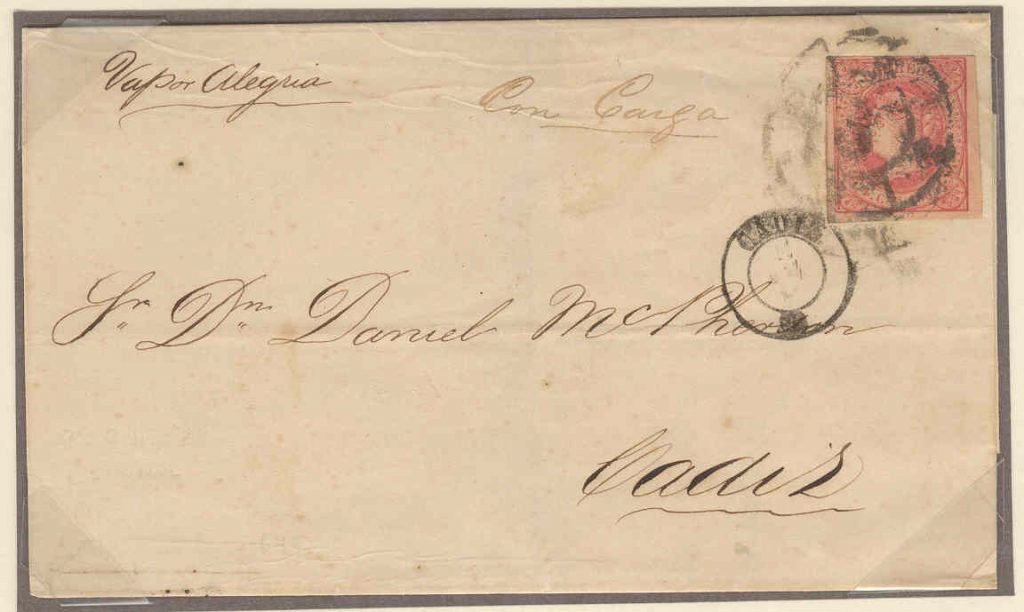 Vapor Alegria
Con Carga
CORREOS
CADIZ
Sr. Dn. Daniel McPherson
Cadiz